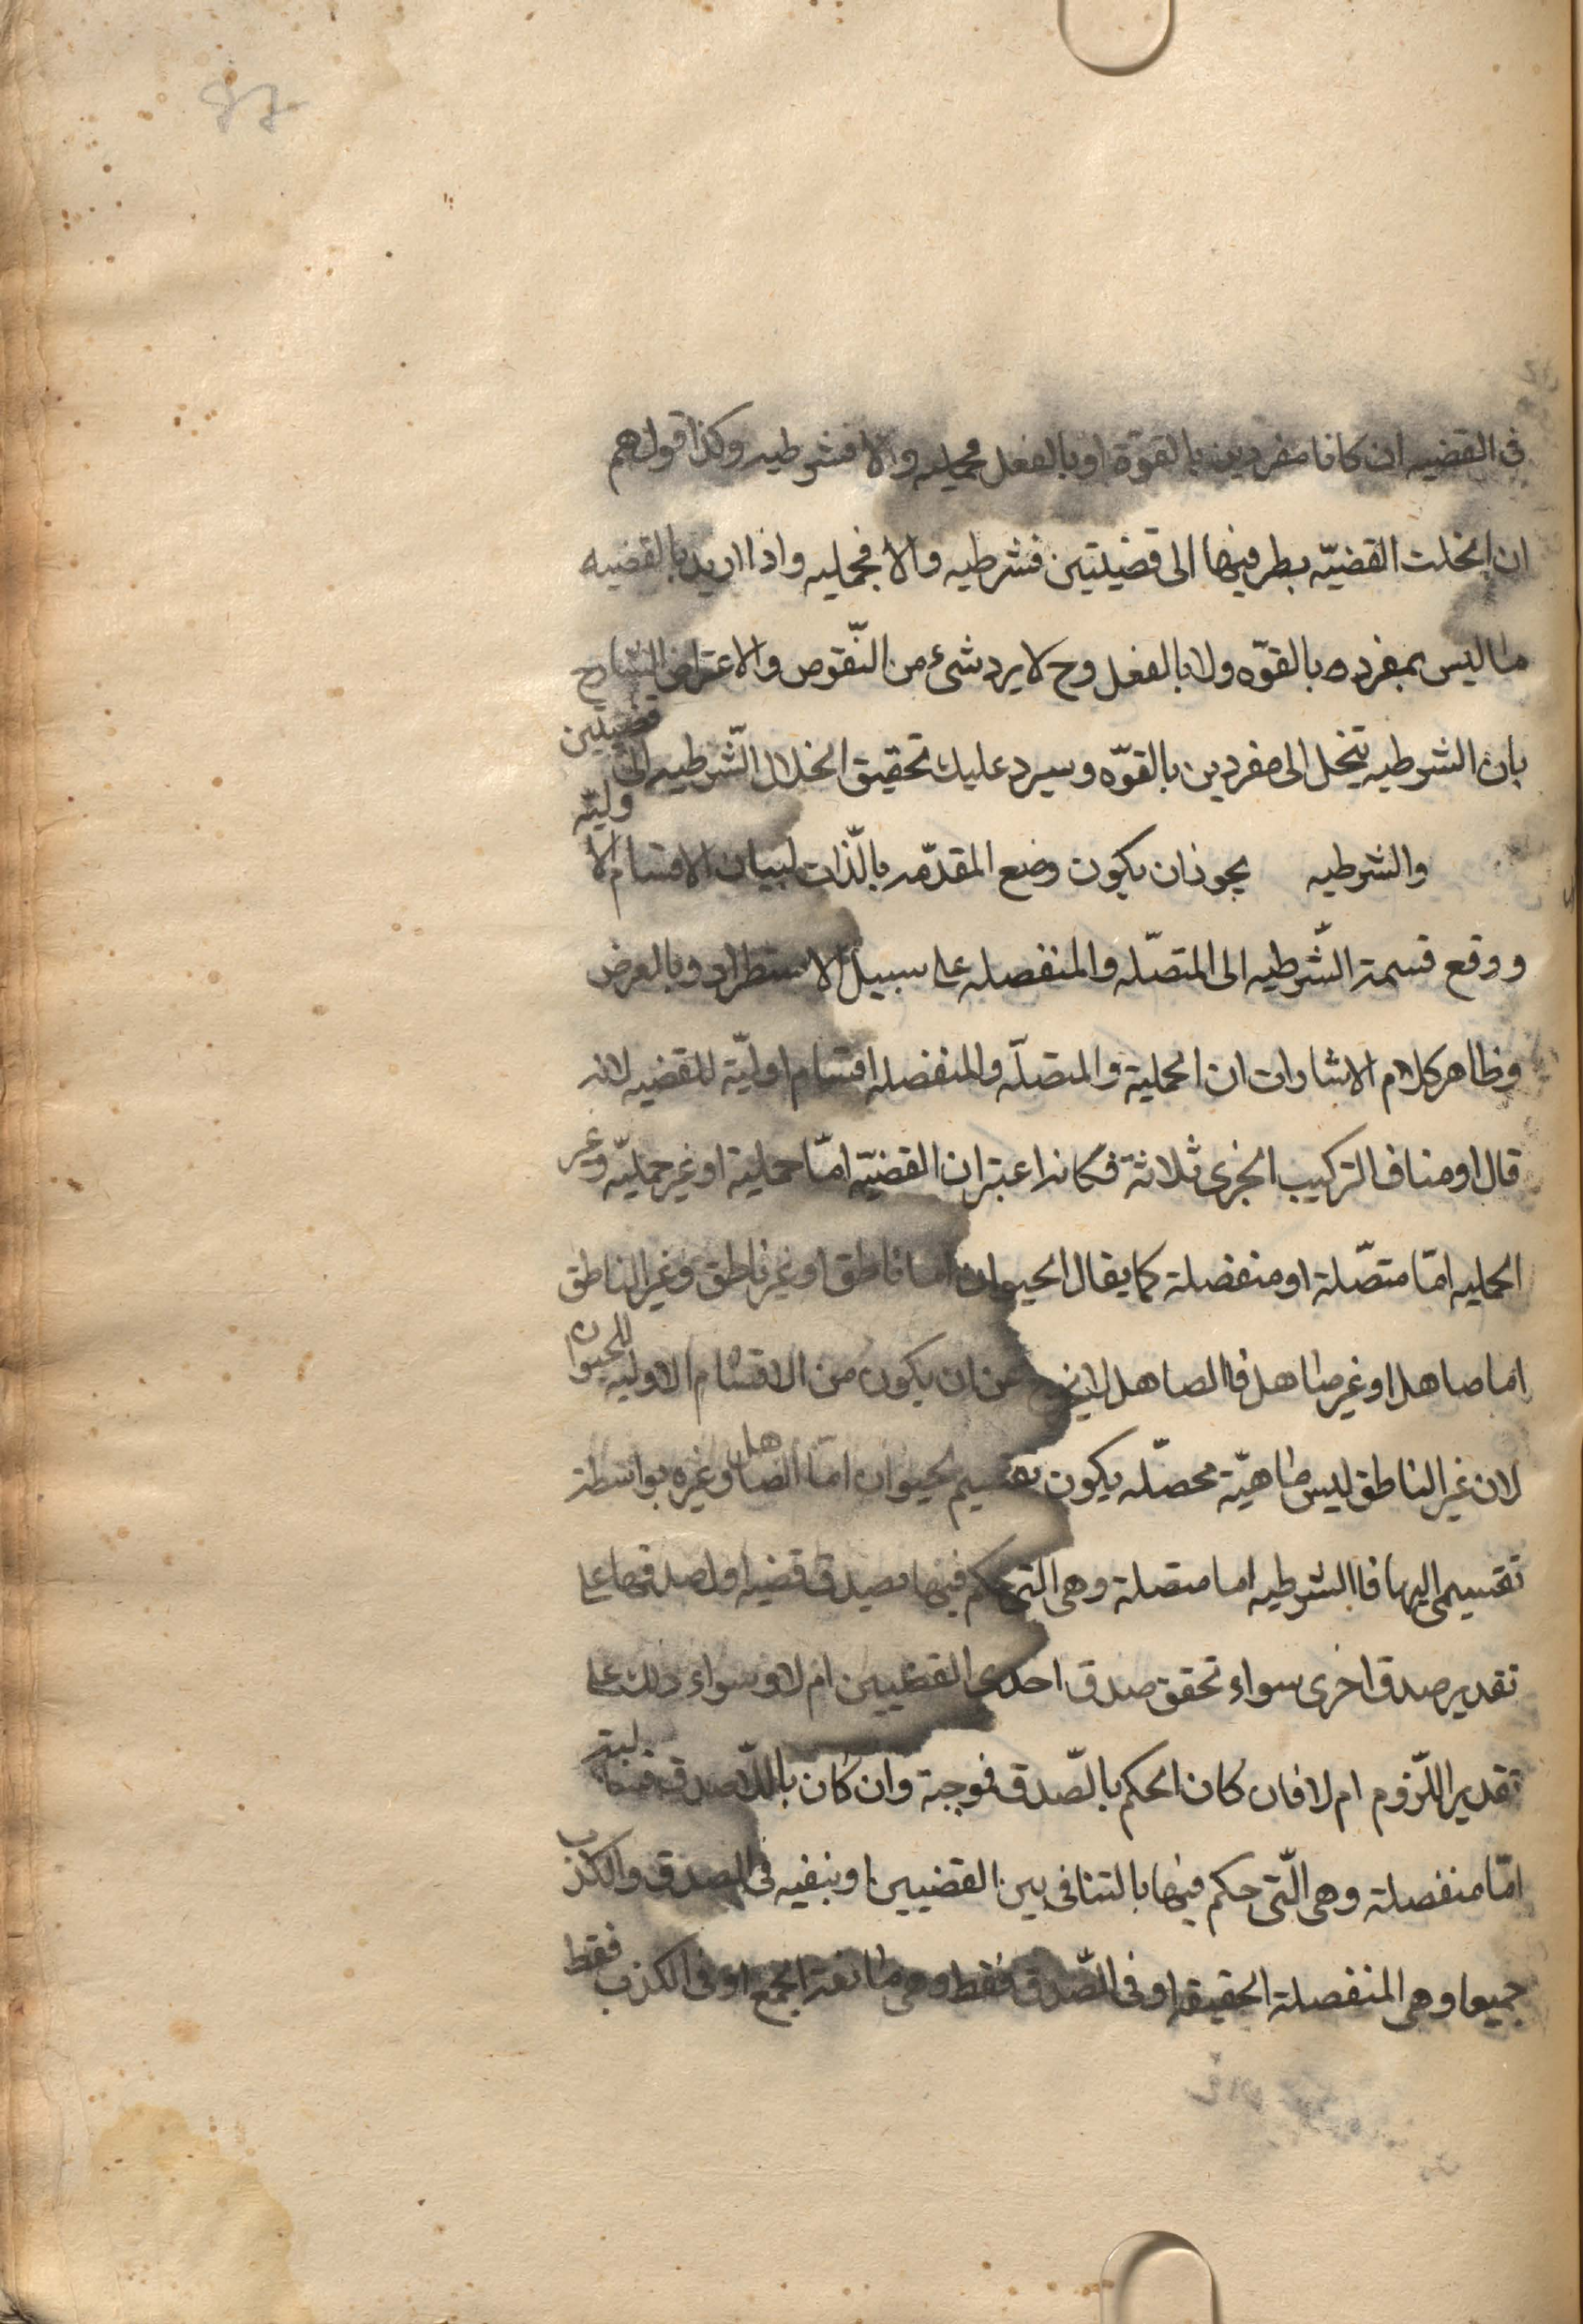 في القضيه ان كانا مفردين بالقوة او بالفعل فحمليه والا فشرطيه وكذا قولهم
ان انحلت القضيّه بطرفيها الى قضيتين فشرطيه والا فحمليه واذا اريد بالقضيه
ما ليس بمفرده بالقوّه ولا بالفعل وح لا يرد شئ من النّقوص والاعتراض الشارح
بان الشرطيه تنحل الى مفردين بالقوّه وسيرد عليك تحقيق انحلال الشّرطيه الى قضيتين
والشرطيه يجوز ان يكون وضع المقدّمه بالّذات لبيان الاقسام الاوليّه
ووقع قسمة الشّرطيه الى المتصّله والمنفصله على سبيل الاستطراد وبالعرض
وظاهر كلام الاشارات ان الحملية والمتصلّه والمنفصله اقسام اوليّة للقضيه لانه
قال اومناف التركيب الخبرى ثلاثة فكانه اعتبر ان القضيّه امّا حملية او غير حمليّه وغير
الحمليه امّا متصّلة او منفصلة كما يقال الحيوان اما ناطق او غير ناطق وغير الناطق
اما صاهل او غير صاهل فاالصاهل لا يخرج عن ان يكون من الاقسام الاوليه للحيوان
لان غير الناطق ليس ماهيّة محصّله يكون تقسيم لحيوان امّا الصاهل وغيره بواسطة
تقسيمى اليها فاالشرطيه اما متصلة وهى التى حكم فيها بصدق قضيه او لصدقها على
تقدير صدق اخرى سواء تحقق صدق احدى القضيين ام لا وسواء ذلك على
تقدير اللّزوم ام لا فان كان الحكم بالصّدق فوجبة وان كان باللّاصدق فسالبة
امّا منفصلة وهى الّتى حكم فيها بالتنافى بين القضيين او بنفيه فى الصدق والكذب
جميعا وهى المنفصلة الحقيقه او فى الصّدق فقط وهى مانعة الجمع او فى الكذب فقط